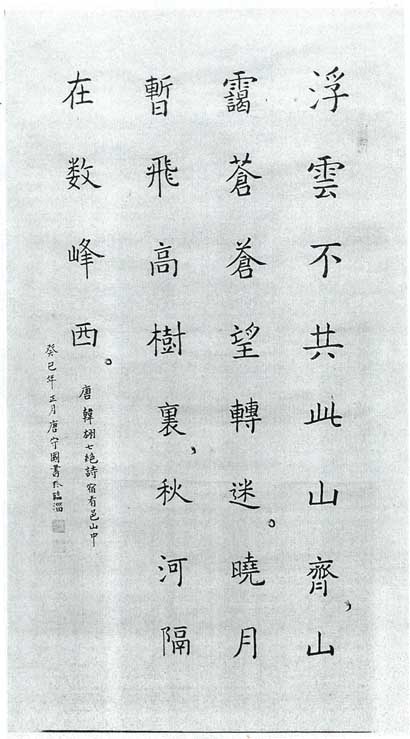 浮雲不共此山齊，山
靄蒼蒼望轉迷。曉月
暫飛高樹裏，秋河隔
在数峰西。
唐 韓翃七绝詩宿石邑山中
癸巳年正月唐守國書於臨淄